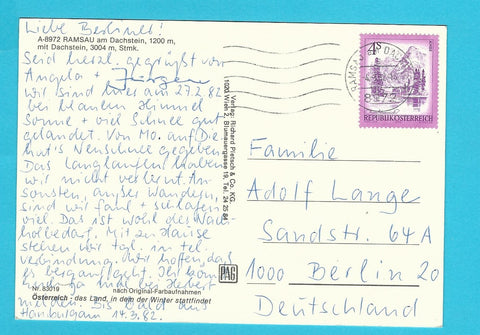 Liebe Berliner!
A-8972 RAMSAU am Dachstein, 1200 m,
mit Dachstein, 3004 m, Stmk.
Seid herzl. gegrüßt von
Angela + Jürgen
wir sind hier am 27.2.82
bei blauem Himmel
Sonne + viel Schnee gut
gelandet. Von Mo. auf Di.
hat's Neuschnee gegeben
Das Langlaufen haben
wir nicht verlernt. An-
sonsten, außer Wandern,
sind wir faul + schlafen
viel. Das ist wohl der Nach-
holbedarf. Mit zu Hause
stehen wir tgl. in tel.
Verbindung. Wir hoffen, daß
es bergauf geht. Ich
mal bei Herbert
melden. Bis bald aus
14.3.82.
Nr. 83019
nach Original-Farbaufnahmen
Österreich - das Land, in dem der Winter stattfindet
Verlag: Richard Pietsch & Co. KG.
1020 Wien 2, Blumauergasse 19, Tel. 24 25 64
PAG
RAMSAU AM DACHSTEIN
8972
4 S
REPUBLIK ÖSTERREICH
Familie
Adolf Lange
Sandstr. 64 A
1000 Berlin 20
Deutschland